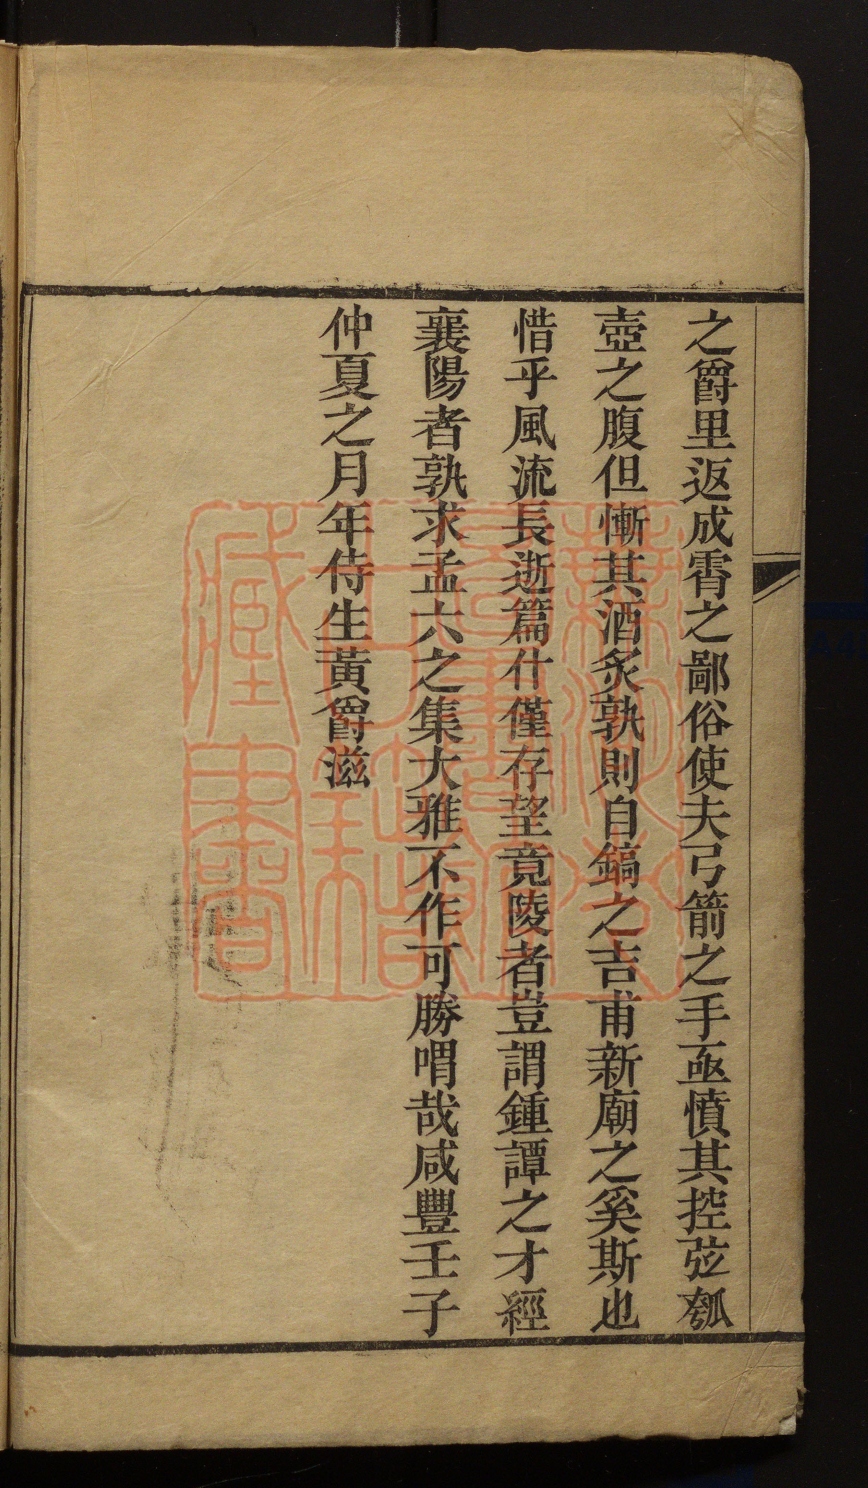 之爵里返成霄之鄙俗使夫弓箭之手亟憤其控弦瓠
壺之腹但慚其酒炙孰則自鎬之吉甫新廟之奚斯也
惜乎風流長逝篇什僅存望竟陵者豈謂鍾譚之才經
襄陽者孰求孟六之集大雅不作可勝喟哉咸豐壬子
仲夏之月年侍生黃爵滋